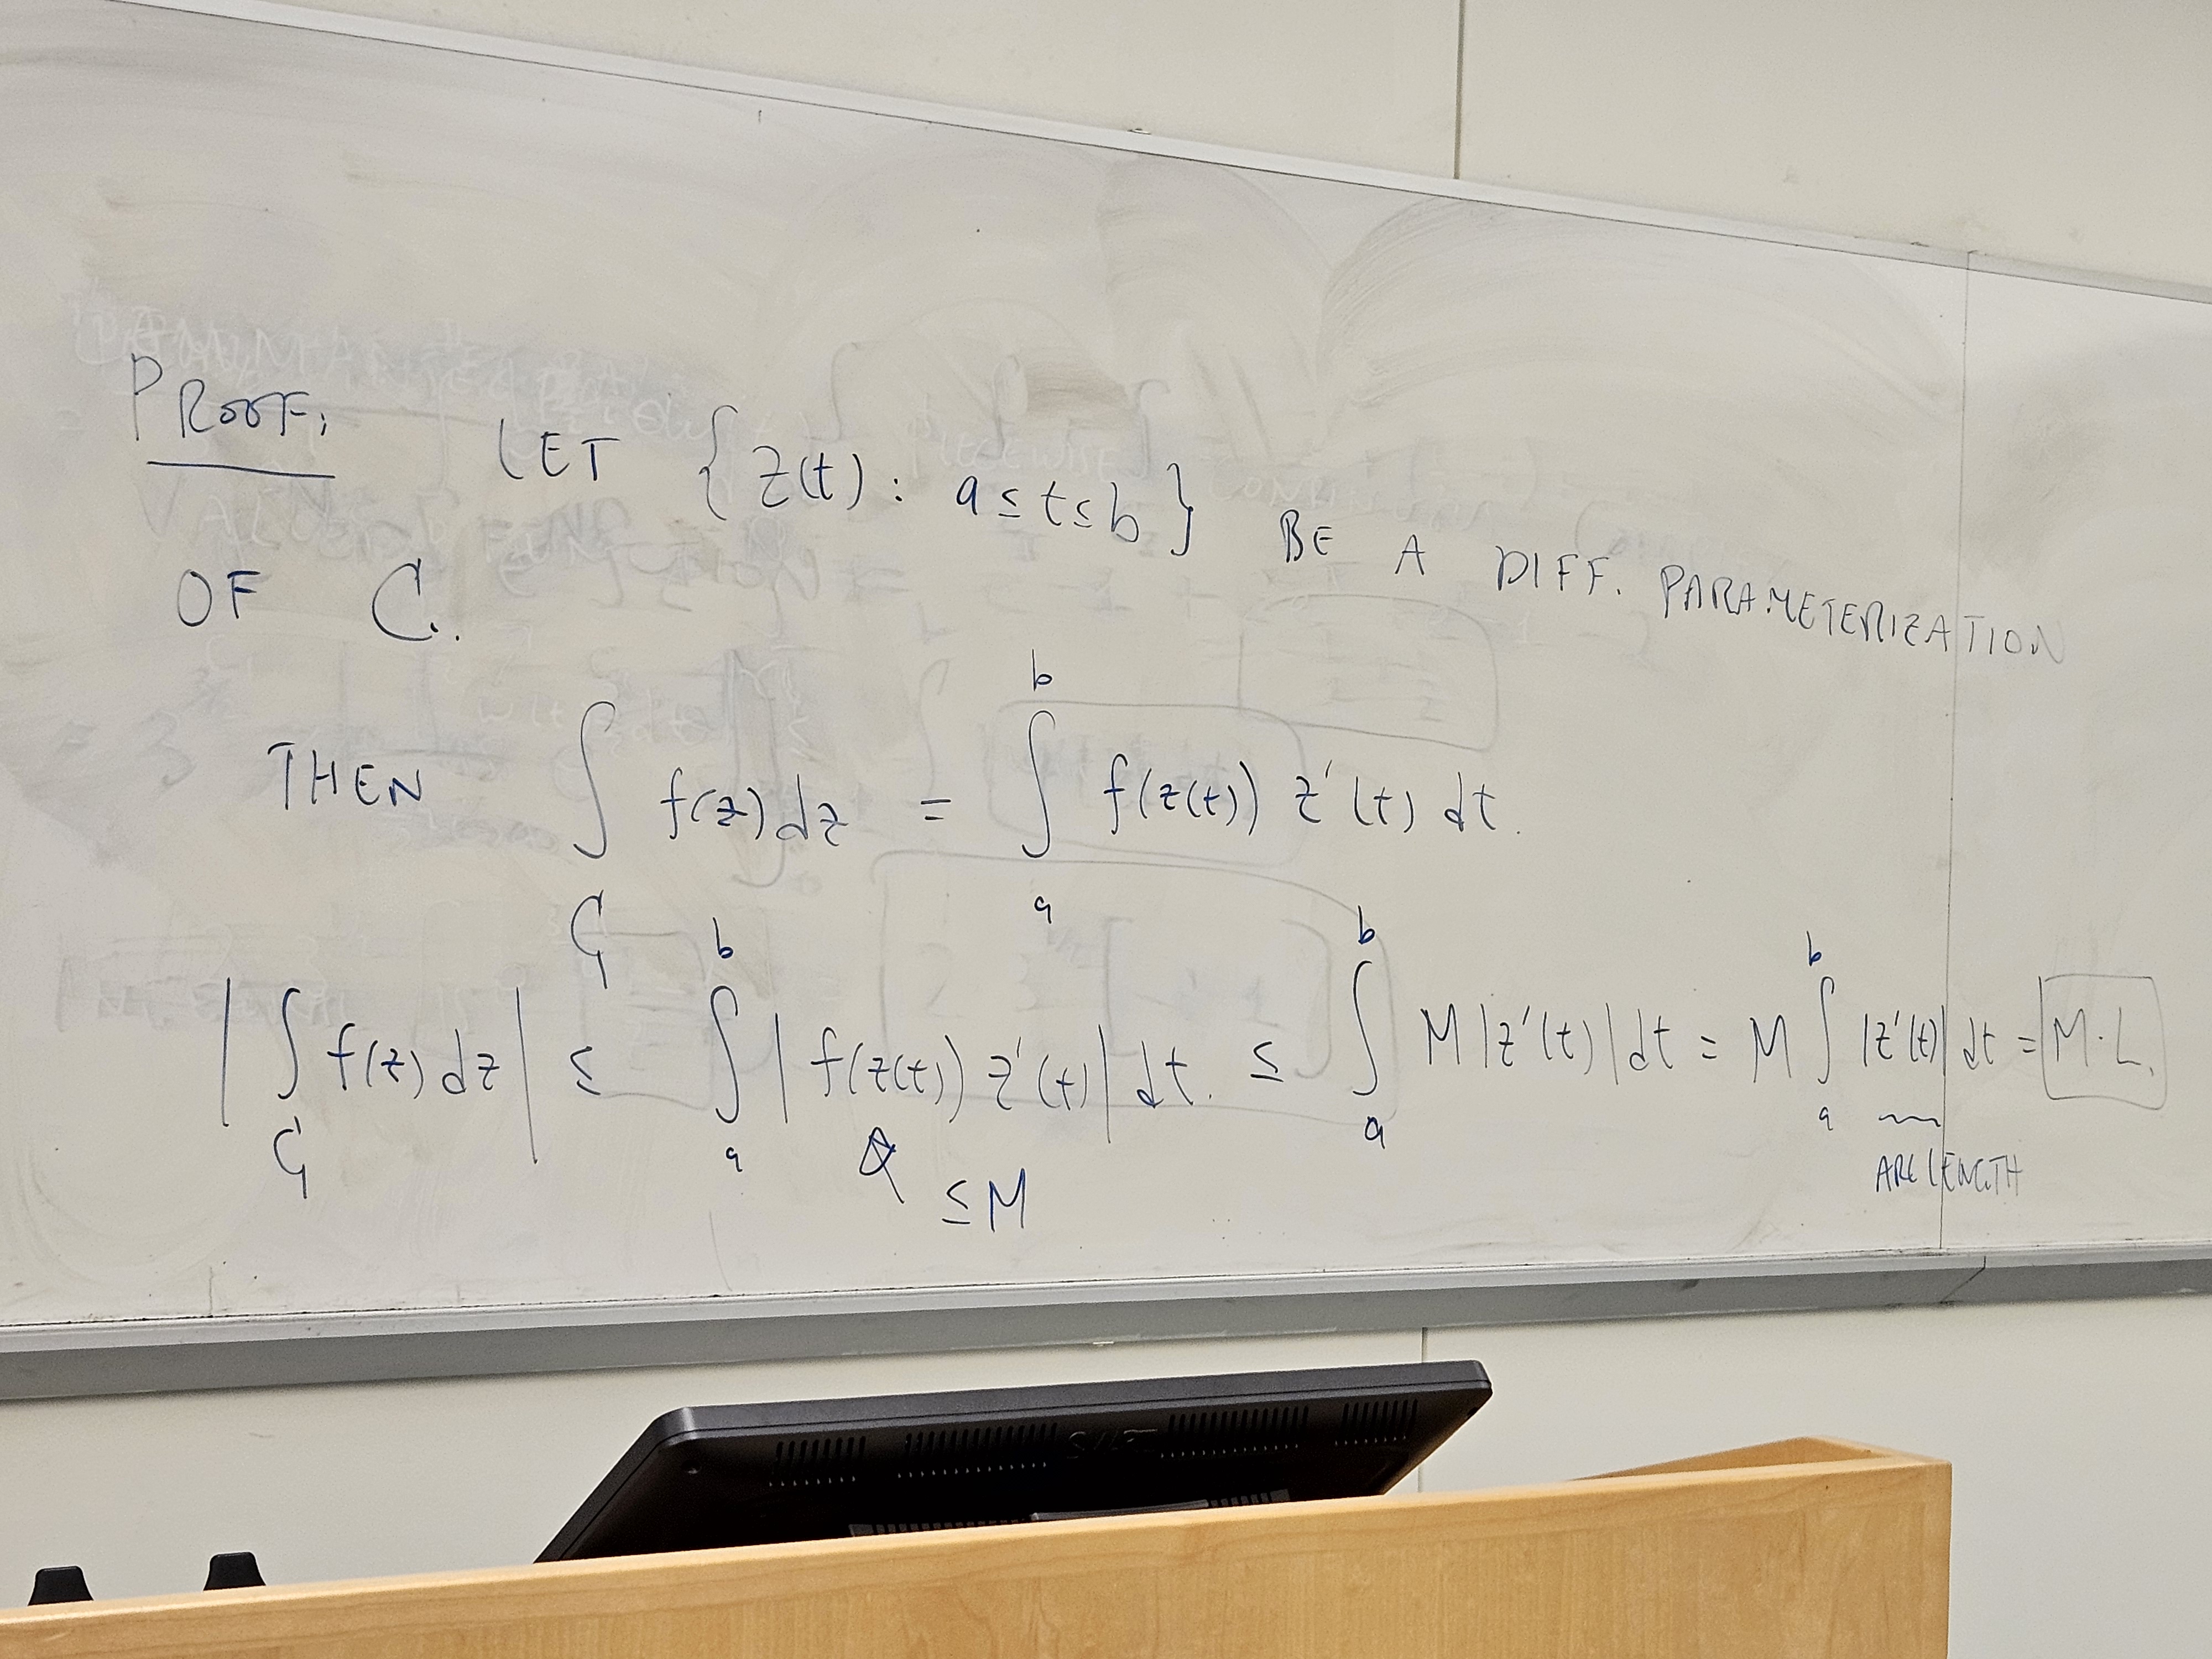 PROOF: LET { z(t) : a ≤ t ≤ b } BE A DIFF. PARAMETERIZATION
OF C.
THEN ∫_C f(z) dz = ∫_a^b f(z(t)) z'(t) dt.
| ∫_C f(z) dz | ≤ ∫_a^b | f(z(t)) z'(t) | dt. ≤ ∫_a^b M |z'(t)| dt = M ∫_a^b |z'(t)| dt = M·L.
≤ M
ARC LENGTH